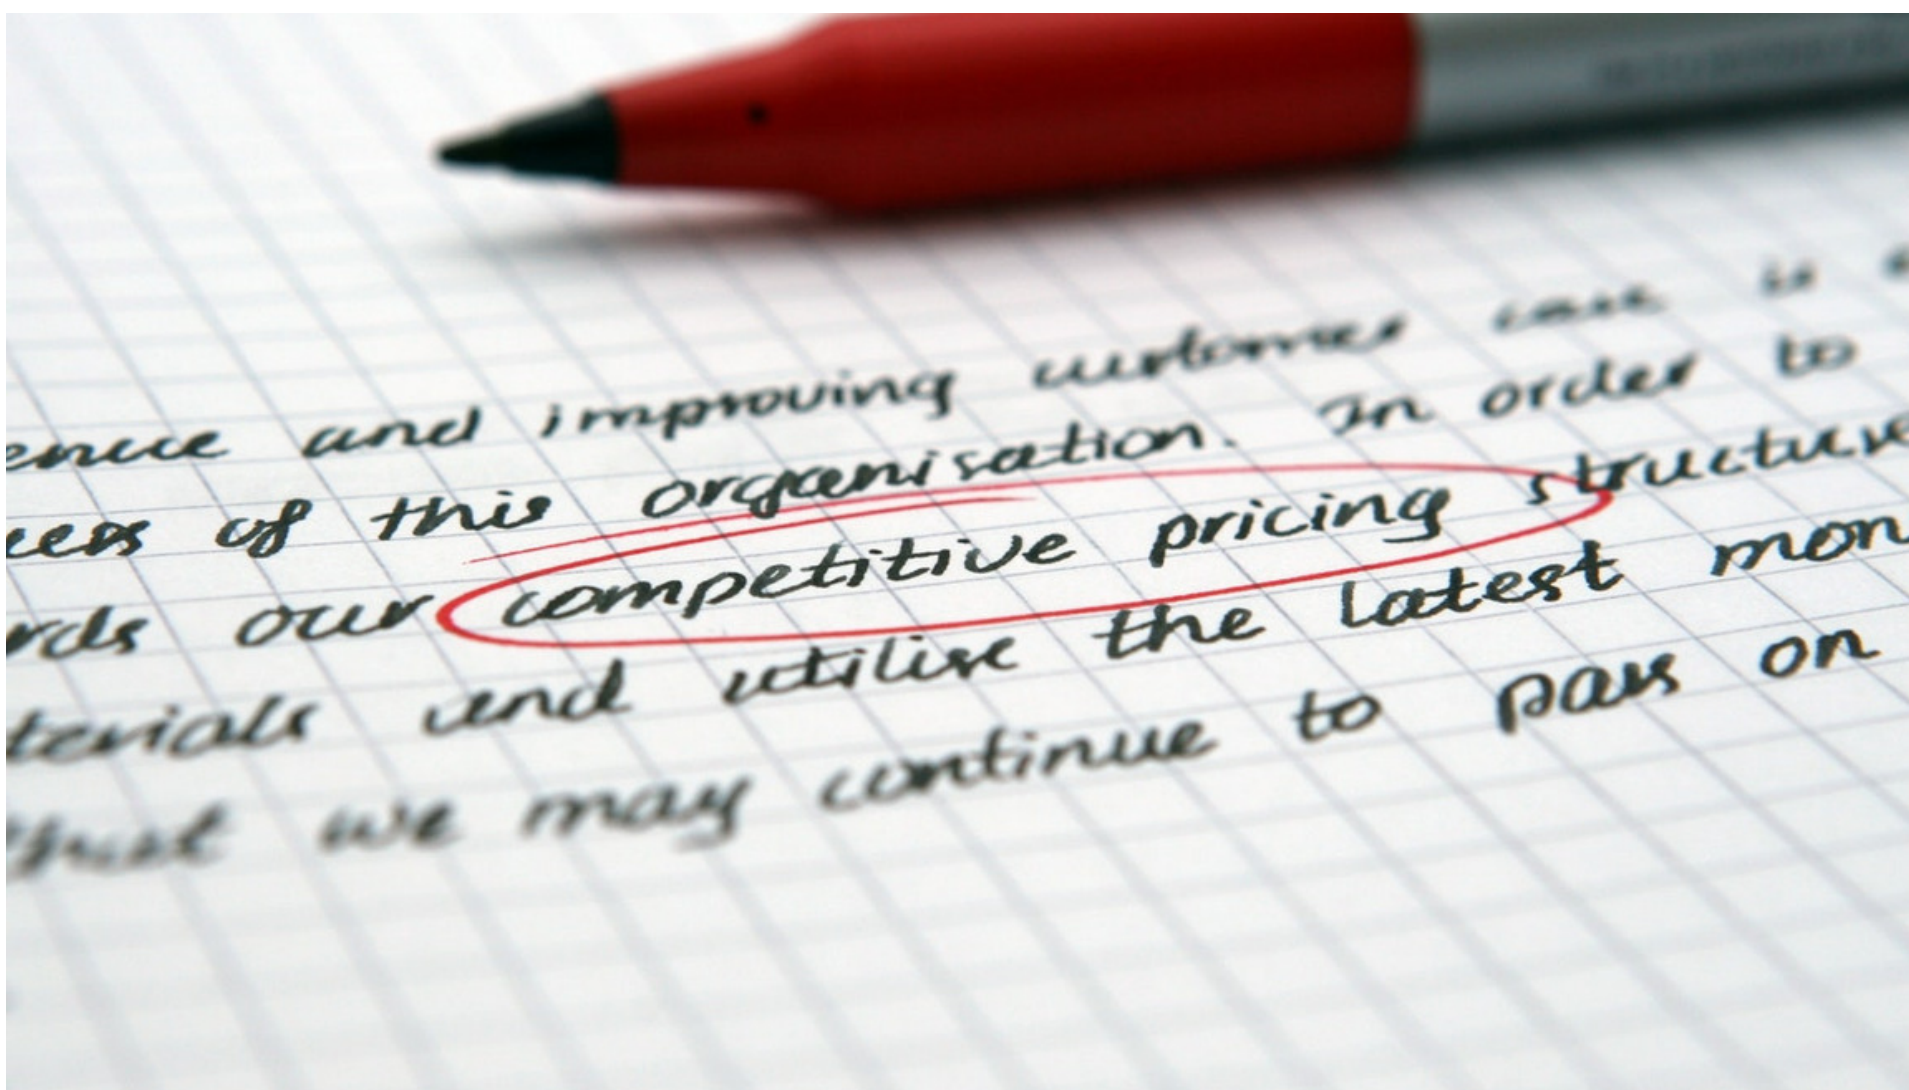 and improving customer care is
of this organisation. In order to
our competitive pricing structure
and utilise the latest mon
that we may continue to pass on